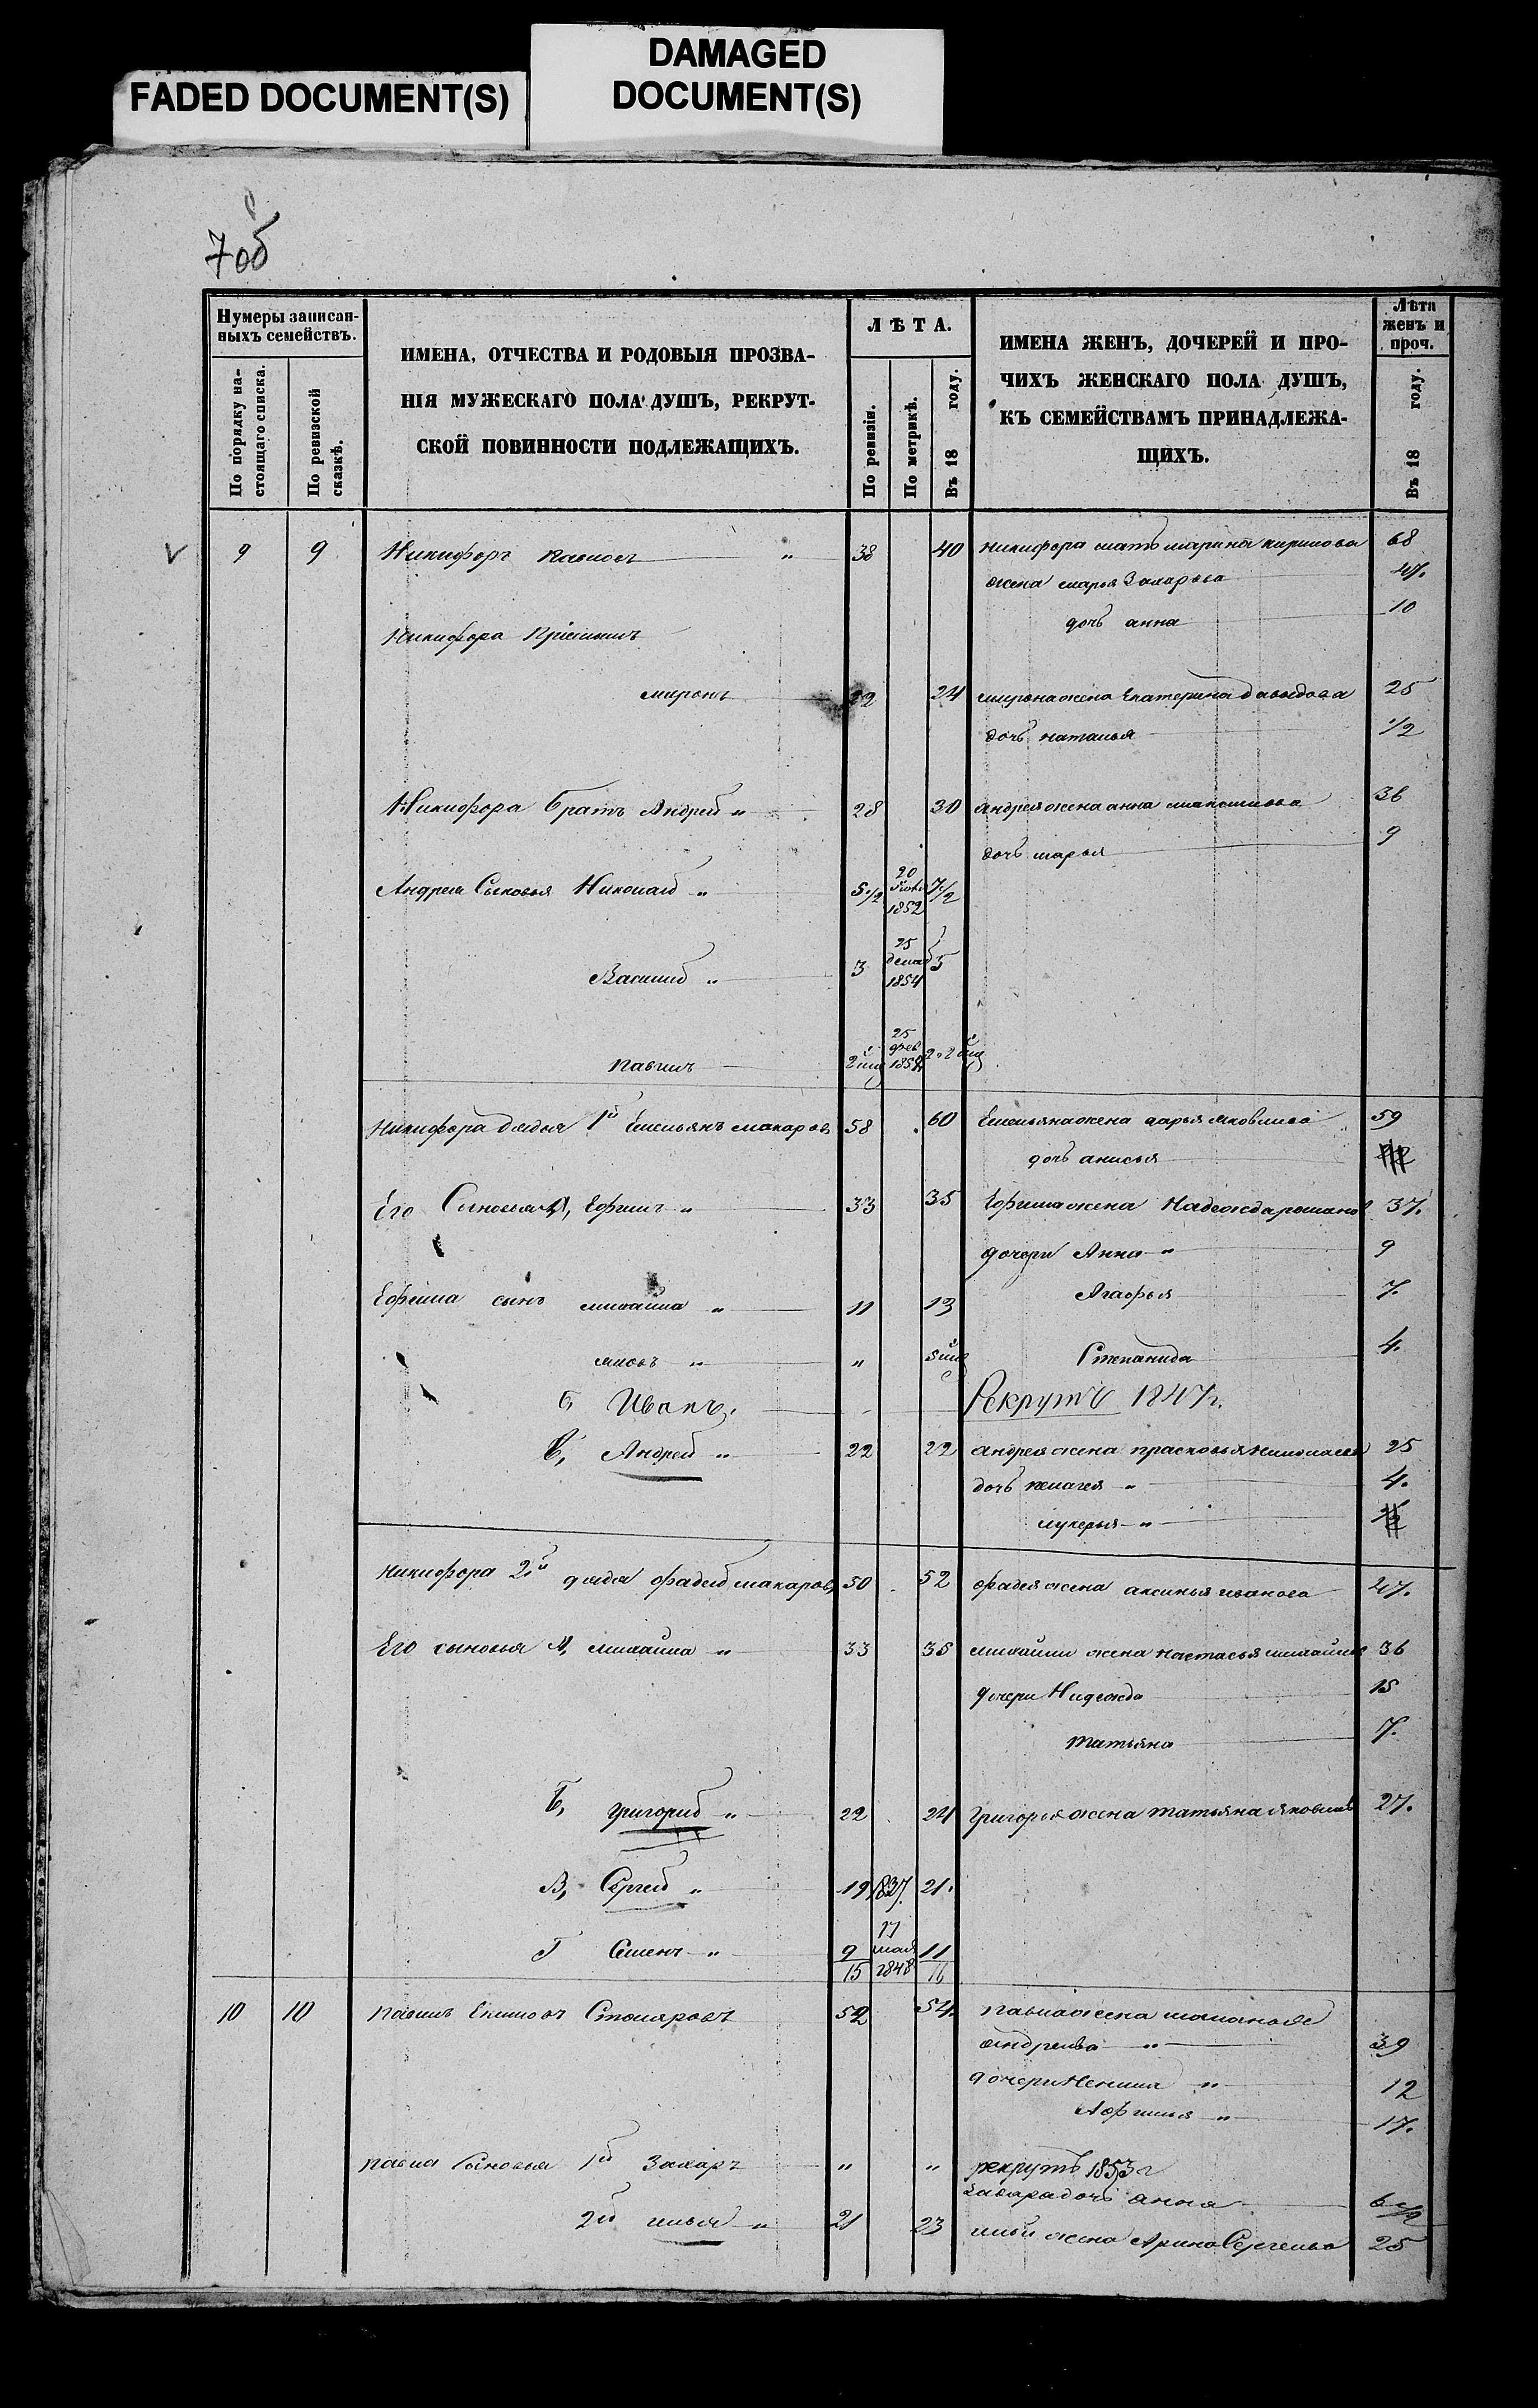 FADED DOCUMENT(S)
DAMAGED
DOCUMENT(S)
7об
Нумеры записан-
ныхъ семействъ.
По порядку на-
стоящаго списка.
По ревизской
сказкѣ.
ИМЕНА, ОТЧЕСТВА И РОДОВЫЯ ПРОЗВА-
НІЯ МУЖЕСКАГО ПОЛА ДУШЪ, РЕКРУТ-
СКОЙ ПОВИННОСТИ ПОДЛЕЖАЩИХЪ.
ЛѢТА.
По ревизіи.
По метрикѣ.
Въ 18 году.
ИМЕНА ЖЕНЪ, ДОЧЕРЕЙ И ПРО-
ЧИХЪ ЖЕНСКАГО ПОЛА ДУШЪ,
КЪ СЕМЕЙСТВАМЪ ПРИНАДЛЕЖА-
ЩИХЪ.
Лѣта
женъ и
проч.
Въ 18 году.
9 9 Никифоръ Павловъ " 38 40 Никифора мать Марина Кирилова 68
жена Марья Захарова 47.
дочь анна 10
Никифора Пріемышъ
миронъ 22 24 мирона жена Екатерина Давыдова 25
дочь наталья 1/2
Никифора Братъ Андрей " 28 30 андрея жена анна максимова 36
дочь марья 9
Андрея Сыновья Николай " 5 1/2 20 1852 7 1/2
Василий " 3 25 декаб 1854 5
Павелъ 25 фев
Никифора дядья 1й Емельянъ макаровъ 58 60 Емельяна жена дарья яковлева 59
дочь анисья
Его Сыновья А, Ефимъ " 33 35 Ефима жена Надежда романов 37.
дочери Анна " 9
Ефима сынъ михайла " 11 13 Агафья 7.
яковъ " " Степанида 4.
Б, Иванъ, Рекрутъ 1847г.
В, Андрей " 22 22 андрея жена прасковья николаева 25
дочь пелагея " 4.
лукерья "
Никифора 2й дядя фадей макаровъ 50 52 фадея жена аксинья иванова 47.
Его сыновья А, михайла " 33 35 михайлы жена настасья михайлов 36
дочери Надежда 15
татьяна 7.
Б, григорий " 22 24 григорья жена татьяна яковлев 27.
В, Сергей " 19 1837. 21.
Г Семенъ " 9 17 мая 11
15 1848 16
10 10 павелъ Екимовъ Столяровъ 52 54. павла жена маланья
андреева " 39
дочери "
12
Афимья " 17.
павла Сыновья 1й Захаръ " " рекрутъ 1853 г
Захара дочь анна 6 1/2
2й илья " 21 23 ильи жена Арина Сергеева 25